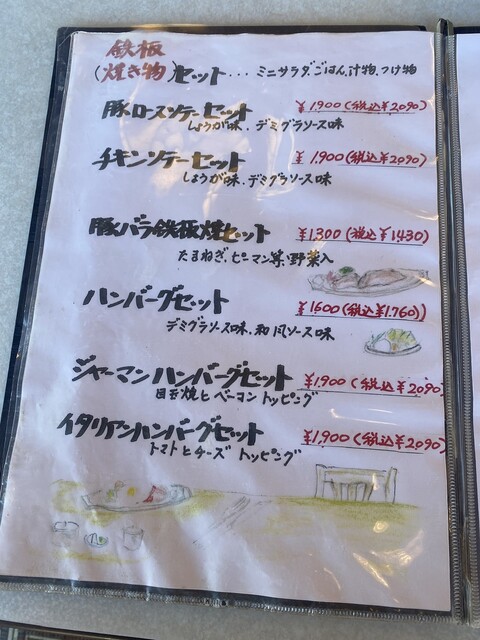 鉄板
(焼き物)セット・・・ミニサラダ、ごはん、汁物、つけ物
豚ロースソテーセット ¥1,900(税込¥2,090)
しょうが味、デミグラソース味
チキンソテーセット ¥1,900(税込¥2,090)
しょうが味、デミグラソース味
豚バラ鉄板焼セット ¥1,300(税込¥1,430)
たまねぎ、ピーマン等、野菜入
ハンバーグセット ¥1600(税込¥1,760)
デミグラソース味、和風ソース味
ジャーマンハンバーグセット ¥1,900(税込¥2,090)
目玉焼とベーコントッピング
イタリアンハンバーグセット ¥1,900(税込¥2,090)
トマトとチーズトッピング